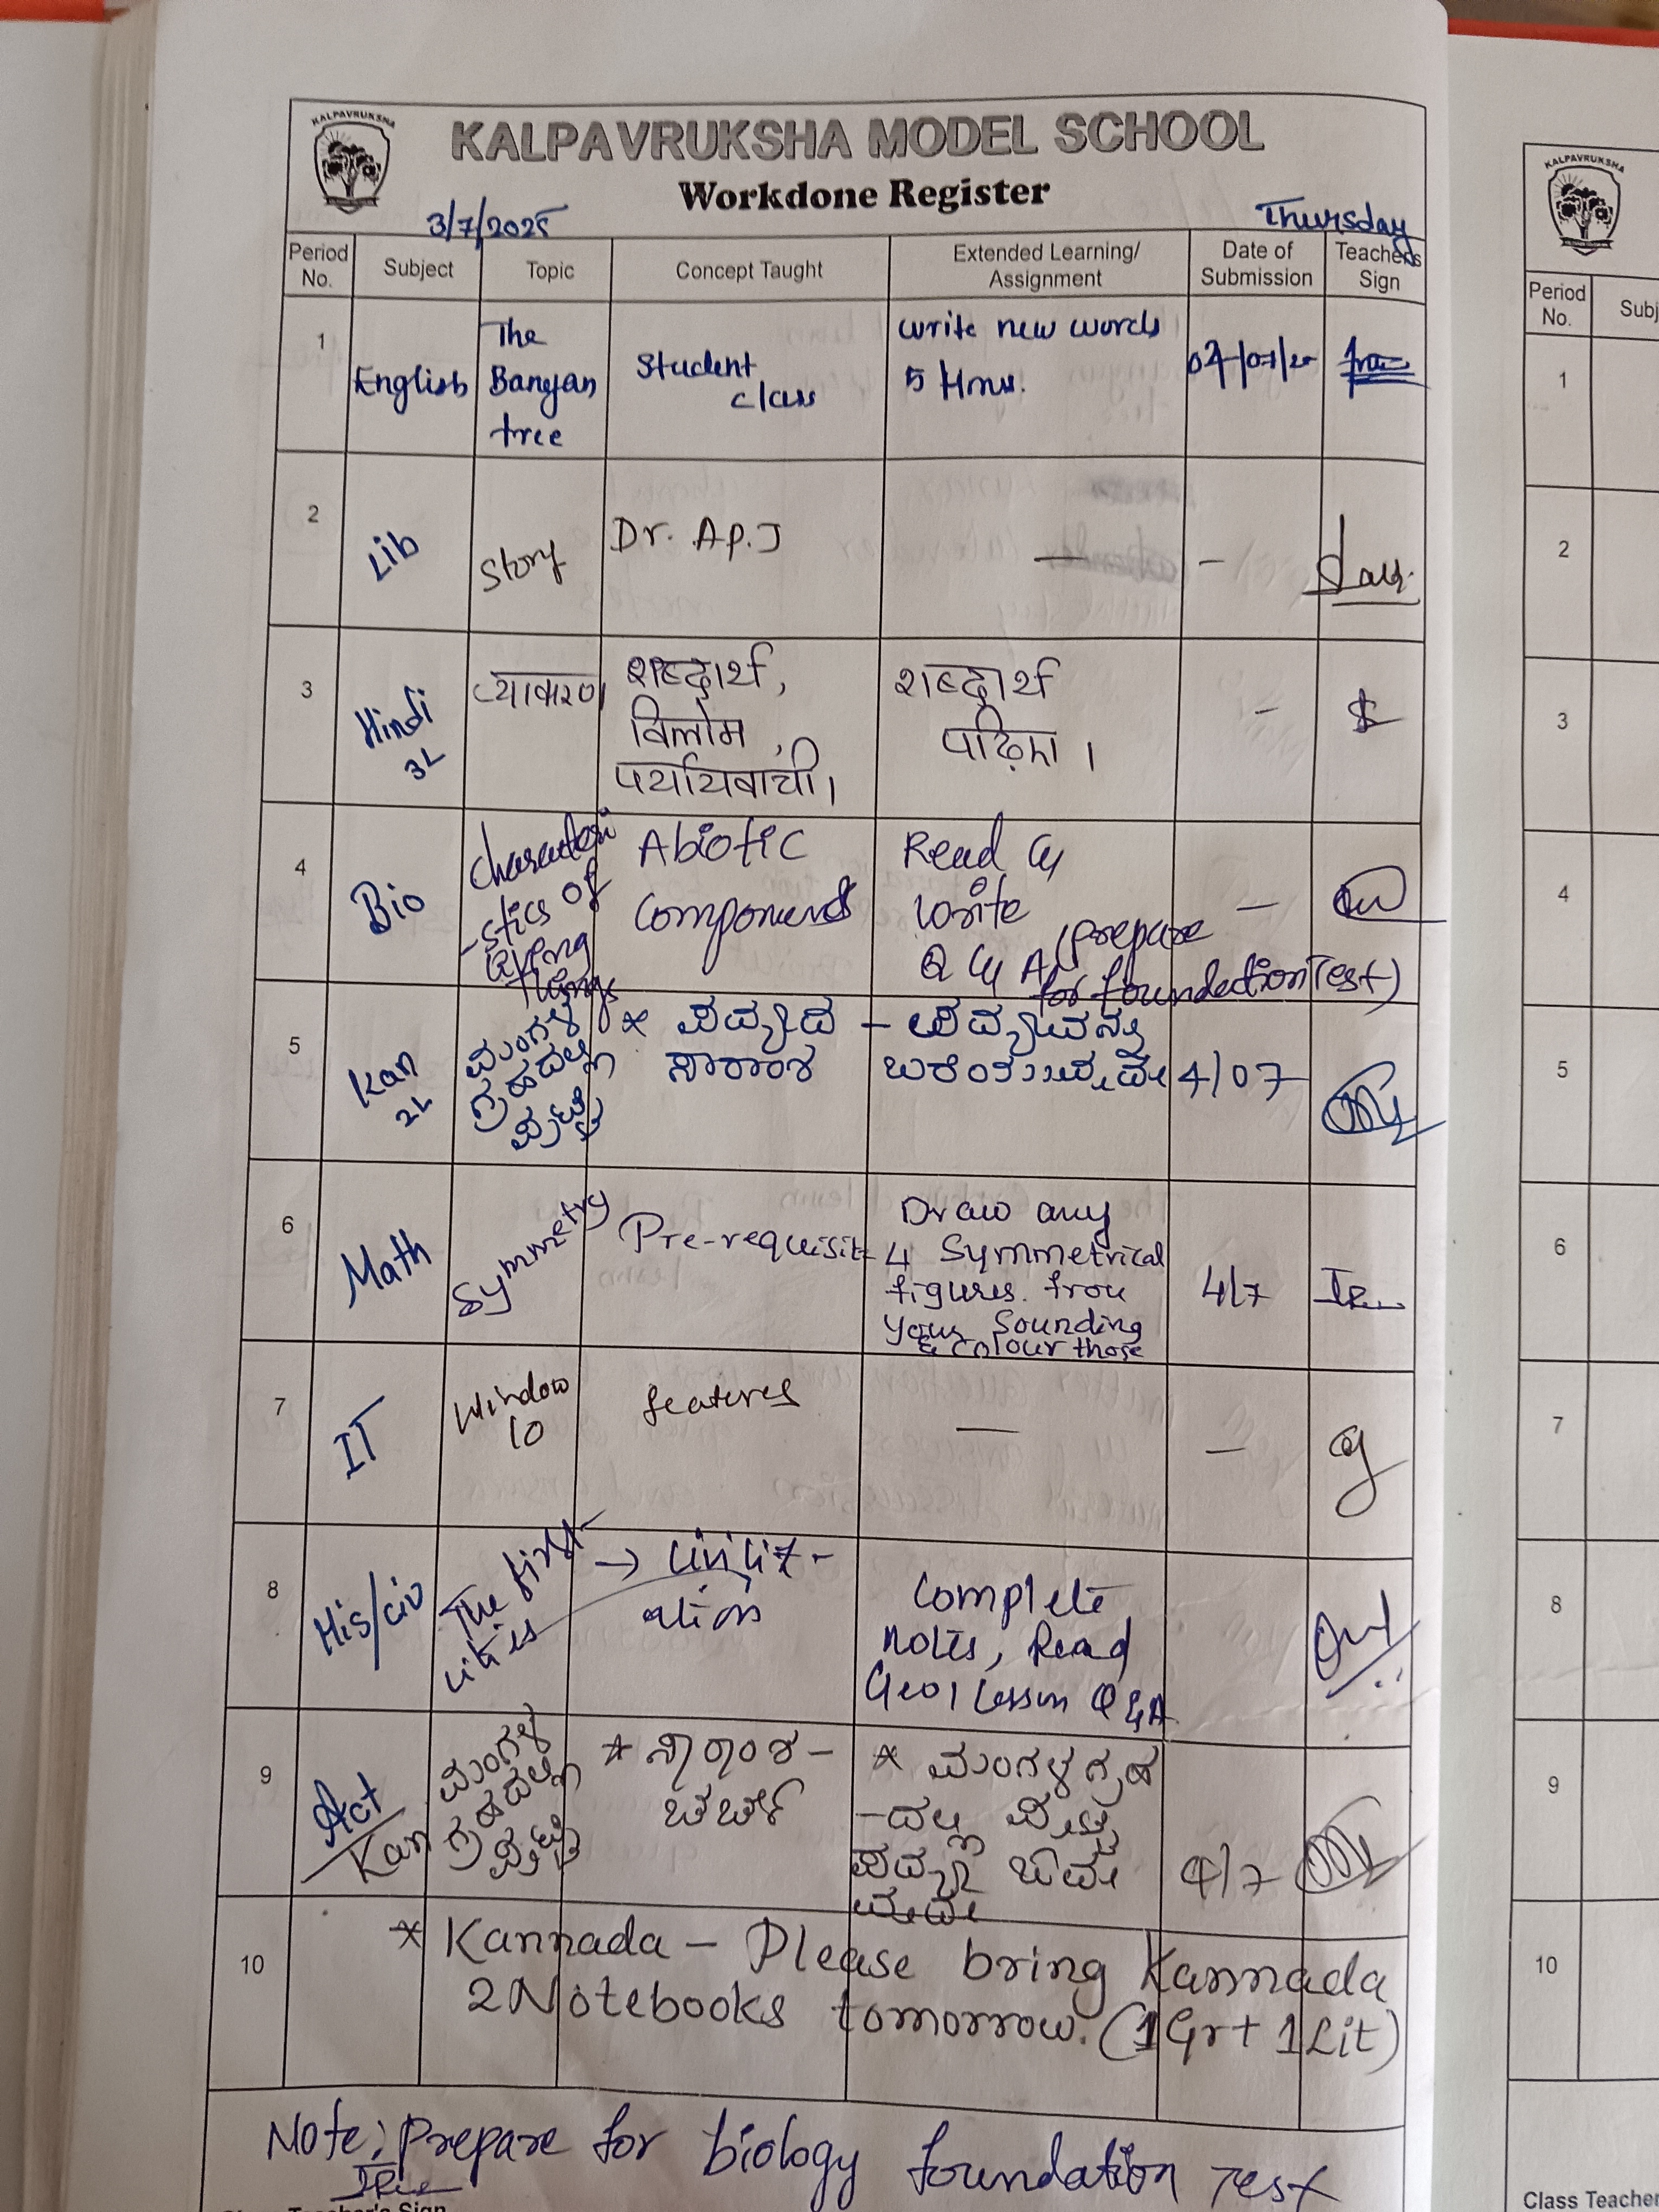 KALPAVRUKSHA
KALPAVRUKSHA MODEL SCHOOL
Workdone Register
3/7/2025 Thursday
Period No. Subject Topic Concept Taught Extended Learning/ Assignment Date of Submission Teacher's Sign
1 English The Banyan tree Student class write new words 5 04/07/25
2 Lib Story Dr. A.P.J — –
3 Hindi 3L व्याकरण शब्दार्थ, विलोम, पर्यायवाची। शब्दार्थ पढ़िए। –
4 Bio Characteri-stics of living things Abiotic Components Read & write Q & A (prepare for foundection Test) –
5 Kan 2L ಮಂಗಳ ಗ್ರಹದಲ್ಲಿ ಪುಟ್ಟಿ * ಪದ್ಯದ – ಸಾರಾಂಶ 4/07
6 Math Symmetry Pre-requisit Draw any 4 Symmetrical figures. from your Sounding & colour those 4/7
7 IT Window 10 features — –
8 His/civ The first cities → Civiliz-ation Complete notes, Read Geo 1 Lesson Q & A
9 Act/Kan ಮಂಗಳ ಗ್ರಹದಲ್ಲಿ ಪುಟ್ಟಿ * ಸಾರಾಂಶ – ಚರ್ಚೆ * ಮಂಗಳ ಗ್ರಹ-ದಲ್ಲಿ ಪುಟ್ಟಿ ಪದ್ಯ 4/7
10 * Kannada – Please bring Kannada
2 Notebooks tomorrow. (1 Gr + 1 Lit)
Note: Prepare for biology foundation Test
KALPAVRUKSHA
Period No. Subj
1
2
3
4
5
6
7
8
9
10
Class Teacher